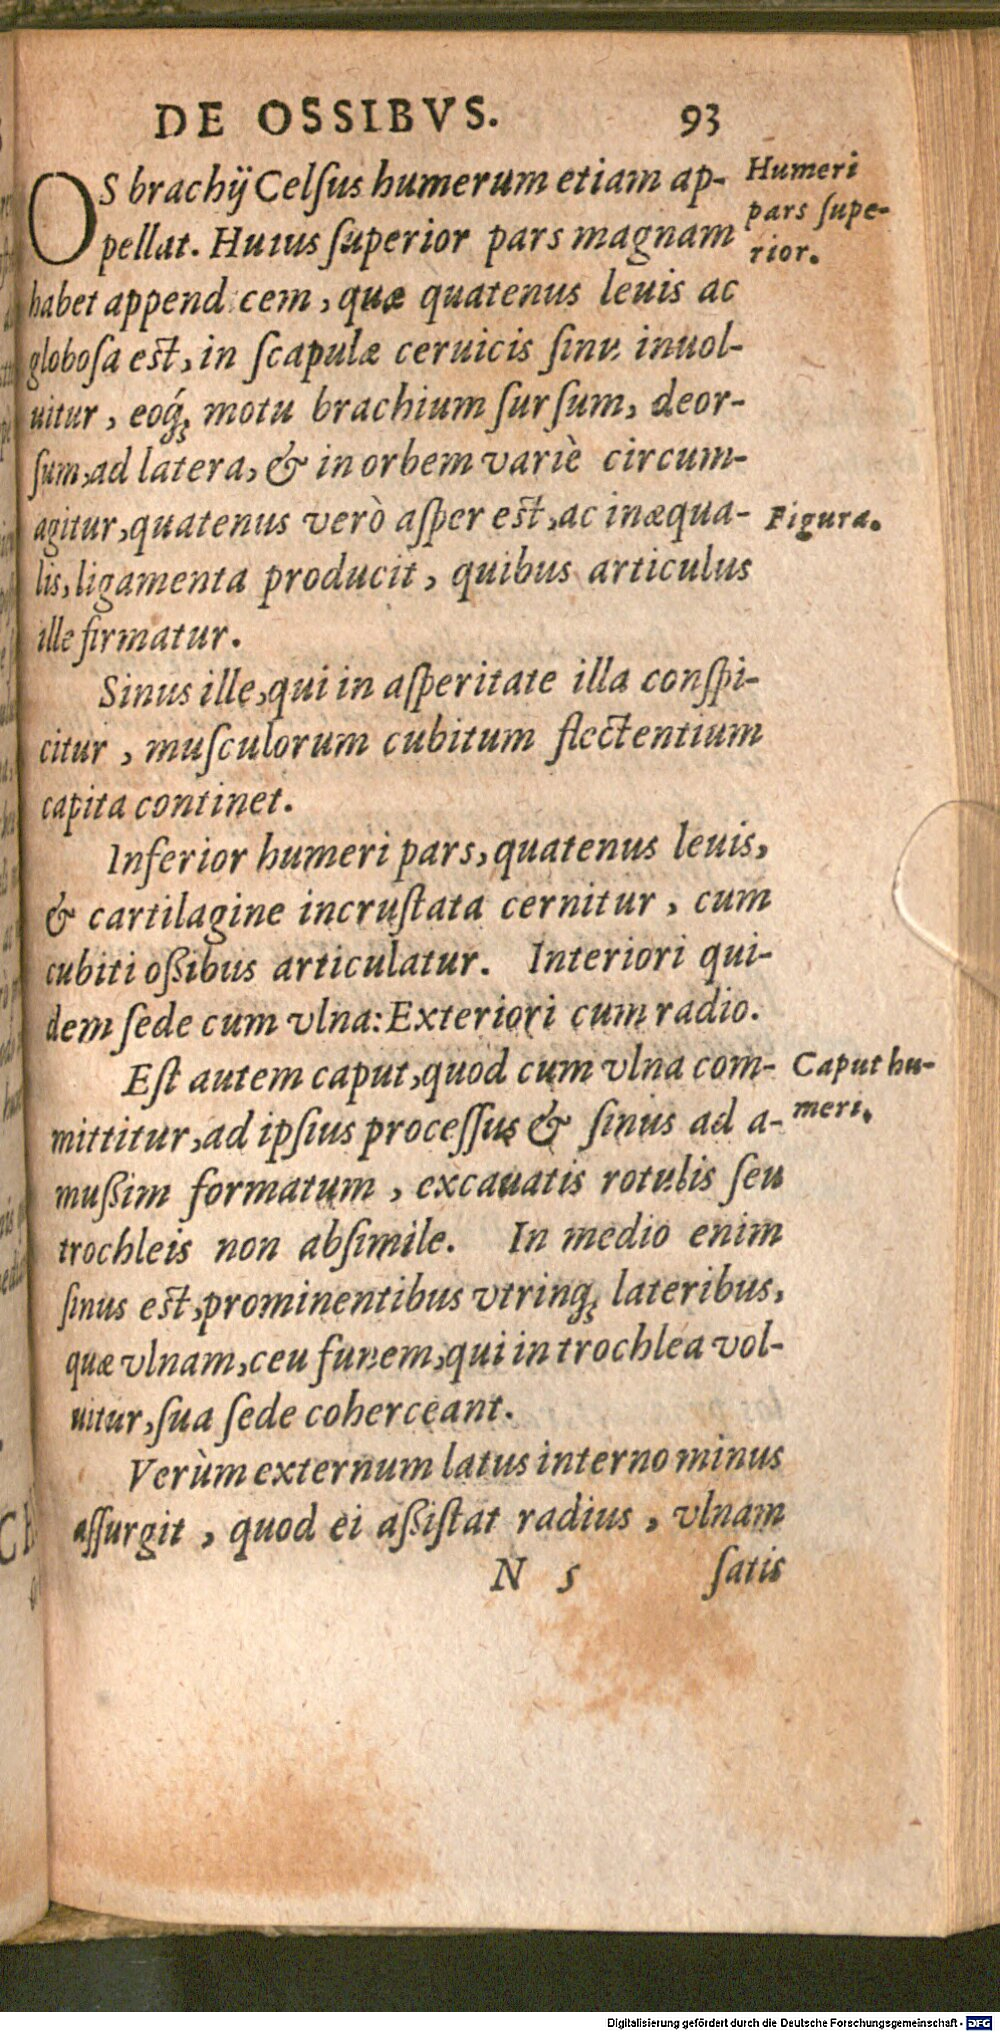 DE OSSIBVS. 93
OS brachij Celſus humerum etiam ap-
pellat. Huius ſuperior pars magnam
Humeri
pars ſupe-
rior.
habet append cem, quæ quatenus leuis ac
globoſa eſt, in ſcapulæ ceruicis ſinu inuol-
uitur, eoq́; motu brachium ſurſum, deor-
ſum, ad latera, & in orbem variè circum-
agitur, quatenus verò aſper eſt, ac inæqua-
Figura.
lis, ligamenta producit, quibus articulus
ille firmatur.
Sinus ille, qui in aſperitate illa conſpi-
citur, muſculorum cubitum flectentium
capita continet.
Inferior humeri pars, quatenus leuis,
& cartilagine incruſtata cernitur, cum
cubiti oßibus articulatur. Interiori qui-
dem ſede cum vlna: Exteriori cum radio.
Eſt autem caput, quod cum vlna com-
Caput hu-
meri.
mittitur, ad ipſius proceſſus & ſinus ad a-
mußim formatum, excauatis rotulis ſeu
trochleis non abſimile. In medio enim
ſinus eſt, prominentibus vtrinq; lateribus,
quæ vlnam, ceu funem, qui in trochlea vol-
uitur, ſua ſede coherceant.
Verùm externum latus interno minus
aſſurgit, quod ei aßiſtat radius, vlnam
N 5 ſatis
Digitalisierung gefördert durch die Deutsche Forschungsgemeinschaft - DFG